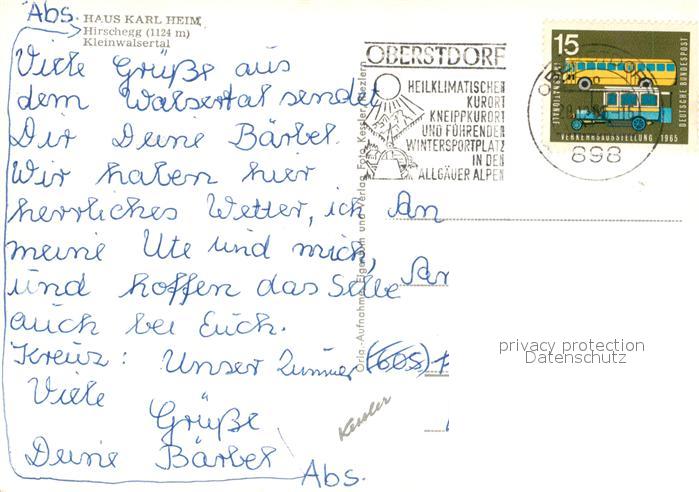 Abs. HAUS KARL HEIM
Hirschegg (1124 m)
Kleinwalsertal
Viele Grüße aus
dem Walsertal sendet
Dir Deine Bärbel.
Wir haben hier
herrliches Wetter, ich
meine Ute und mich,
und hoffen das Selbe
auch bei Euch.
Kreuz: Unser Zimmer (605)
Viele
Grüße
Deine Bärbel
Abs.
Orig.-Aufnahme Eigentum und Verlag Foto Kessler,
Kessler
OBERSTDORF
HEILKLIMATISCHER
KURORT
KNEIPPKURORT
UND FÜHRENDER
WINTERSPORTPLATZ
IN DEN
ALLGÄUER ALPEN
15
DEUTSCHE BUNDESPOST
VERKEHRSAUSSTELLUNG 1965
898
An
privacy protection
Datenschutz